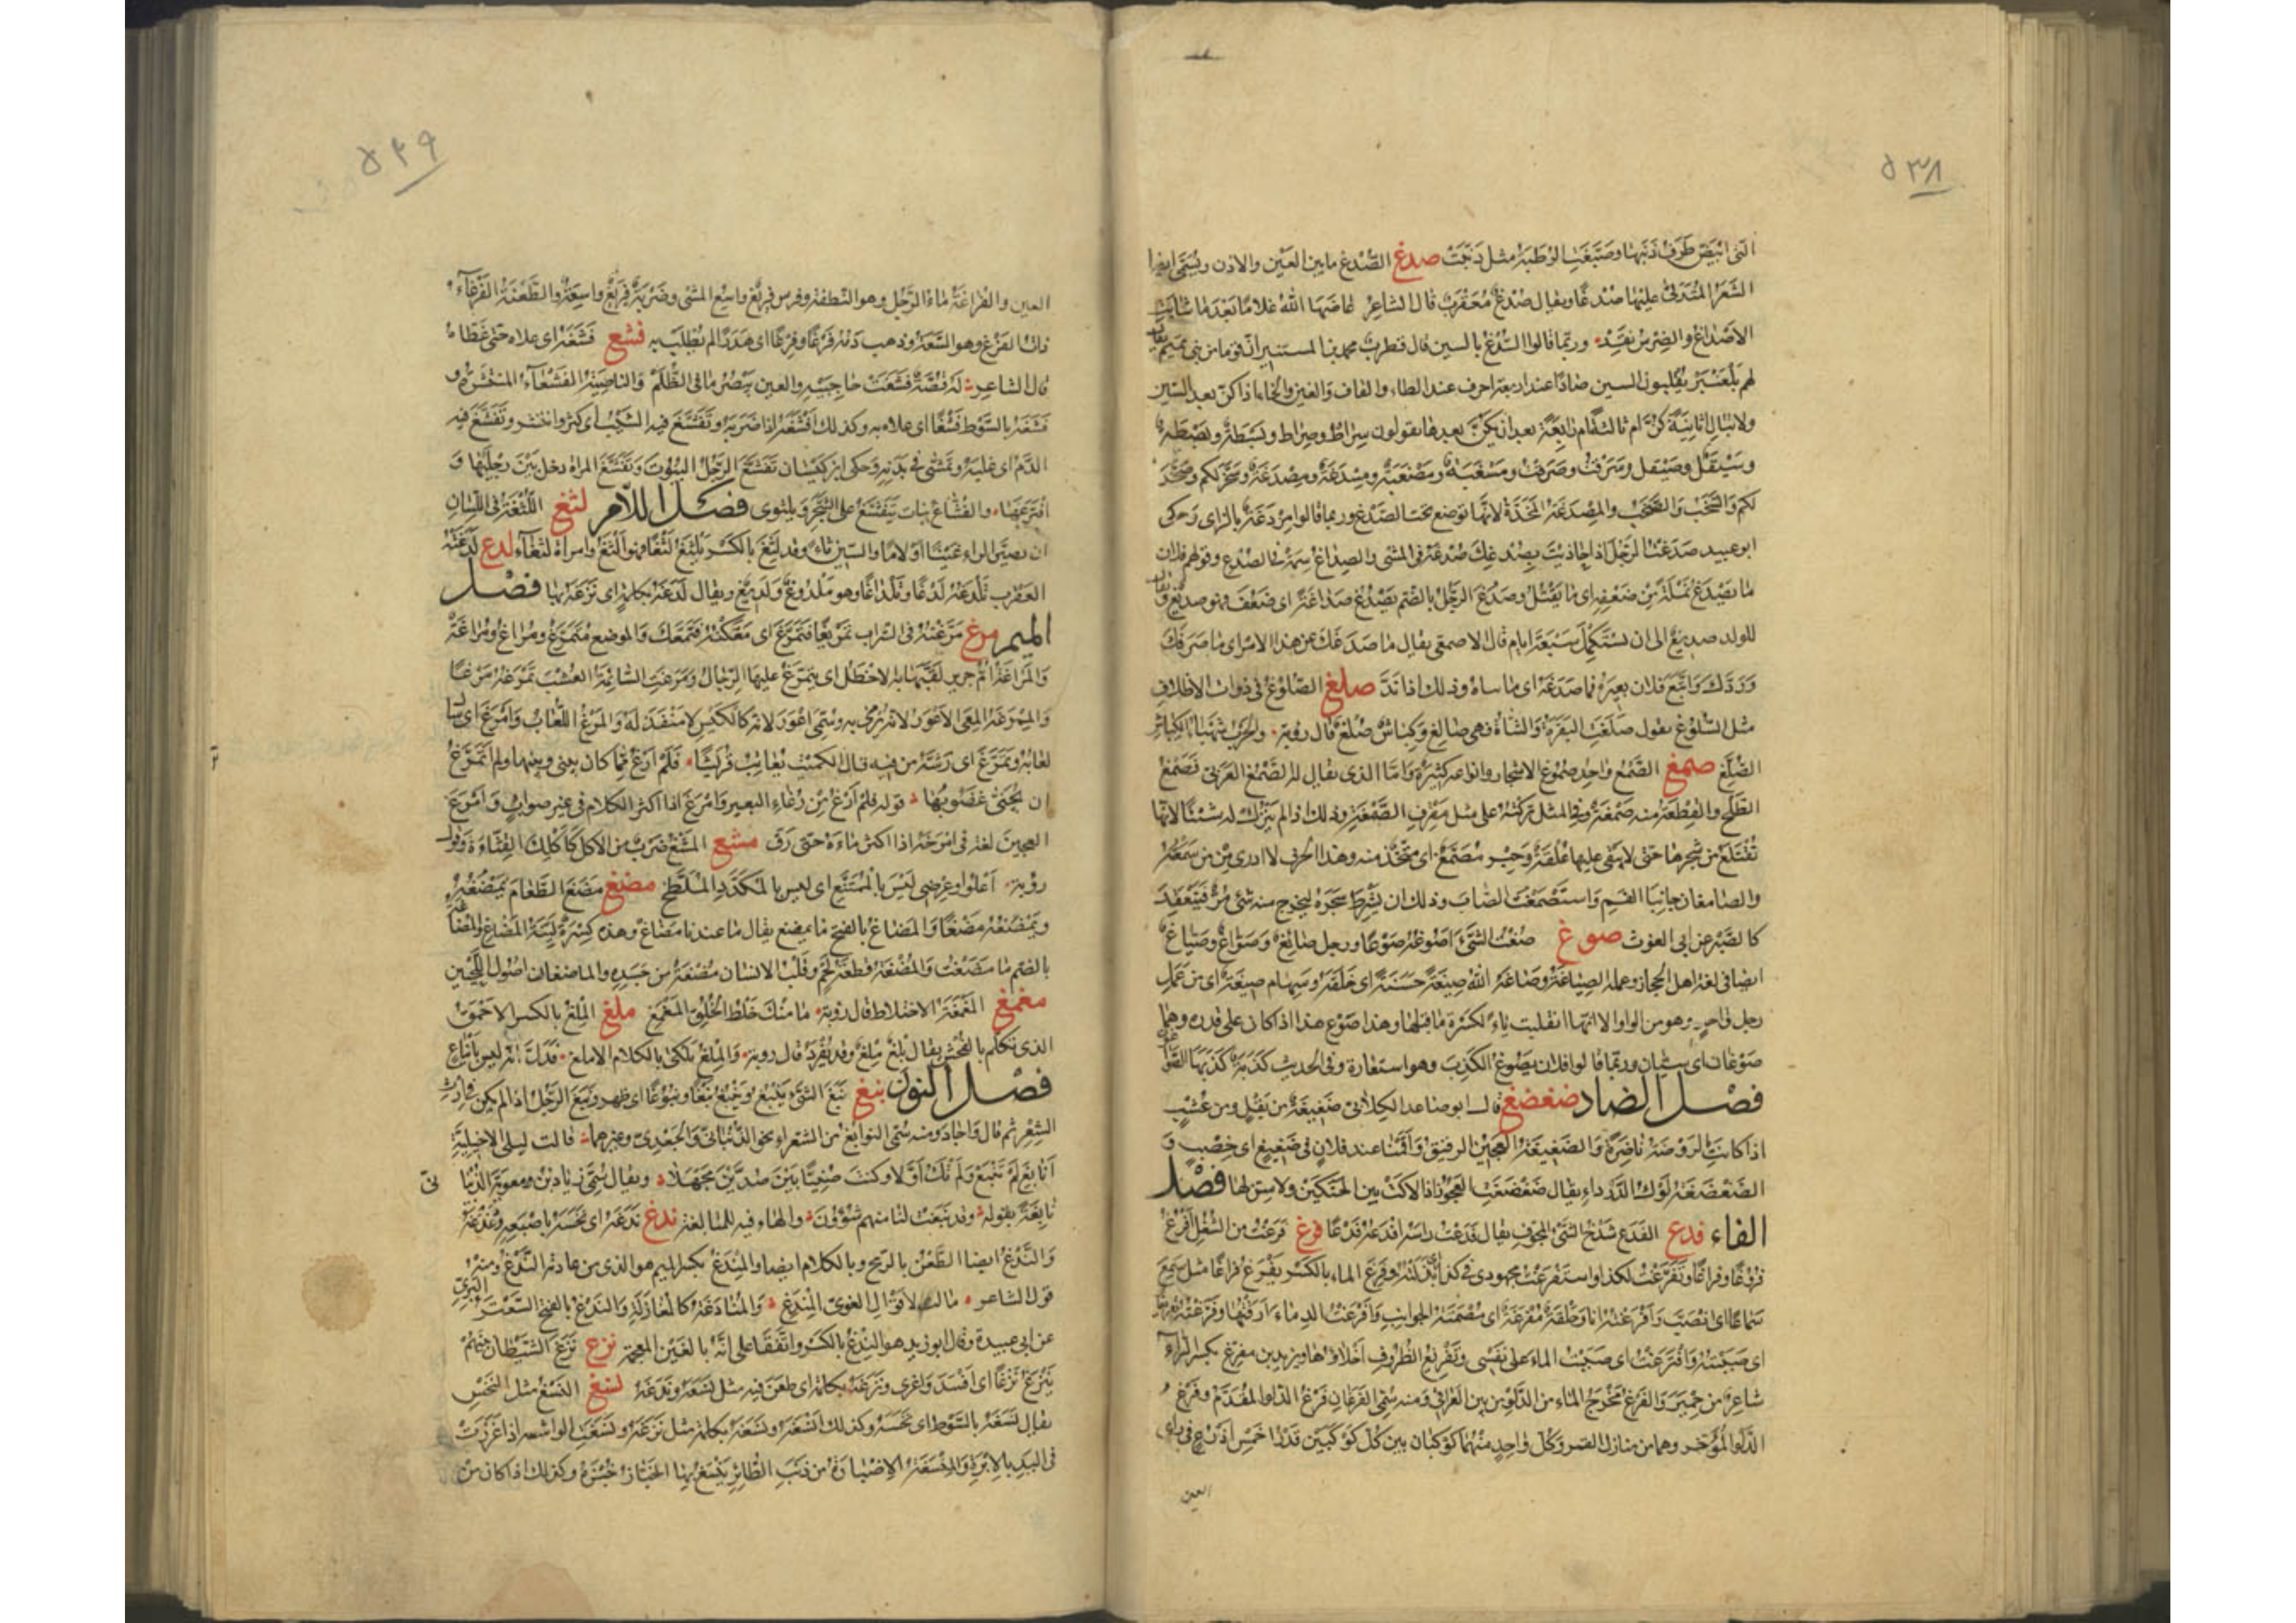 ٥٣٨
التى ابيض طرف ذنبها وصبغت الرطبة مثل ذنبت صدغ الصدغ ما بين العين والاذن ويسمى ايضا
الشعر المتدلى عليها صدغا ويقال صدغ معقرب قال الشاعر عاضها الله غلاما بعد ما شابت
الاصداغ والضرس نقد وربما قالوا السدغ بالسين قال قطرب محمد بن المستنير ان قوما من بنى تميم يقال
لهم بلعنبر يقلبون السين صادا عند اربعة احرف عند الطاء والقاف والغين والخاء اذا كن بعد السين
ولا تبالى اثانية كن ام ثالثة ام رابعة بعد ان يكن بعدها يقولون سراط وصراط وبسطة وبصطة
وسيقل وصيقل وسرقت وصرقت ومسغبة ومصغبة ومسدغة ومصدغة وسخر لكم وصخر
لكم والسخب والصخب والمصدغة المخدة لانها توضع تحت الصدغ وربما قالوا مزدغة بالزاى وحكى
ابو عبيد صدغت الرجل اذا حاذيت بصدغك صدغه فى المشى والصداغ سمة فى الصدغ وقولهم فلان
ما يصدغ نملة من ضعفه اى ما يقتل وصدغ الرجل بالضم يصدغ صداغة اى ضعف فهو صديغ ويقال
للولد صديغ الى ان تستكمل سبعة ايام قال الاصمعى يقال ما صدغك عن هذا الامر اى ما صرفك
وردك واتبع فلان بعيره فما صدغه اى ما ثناه وذلك اذا ند صلغ الصلوغ فى ذوات الاظلاف
مثل السلوغ يقول صلغت البقرة والشاة وهى صالغ وكباش صلغ قال رؤبة والحرب شهباء الكباش
الصلغ صمغ الصمغ واحد صموغ الاشجار وانواعه كثيرة واما الذى يقال له الصمغ العربى فصمغ
الطلح والقطعة منه صمغة وفى المثل تركته على مثل مقرف الصمغة وذلك اذا لم يترك له شيئا لانها
تقتلع من شجرها حتى لا يبقى عليها علقة وحبر مصمغ اى متخذ منه وهذا الحرف لا ادرى ممن سمعته
والصامغان جانبا الفم واستصمغت الصاب وذلك ان يشرط شجره ليخرج منه شئ مر فينعقد
كالصبر عن ابى الغوث صوغ صغت الشئ اصوغه صوغا ورجل صائغ وصواغ وصياغ
ايضا فى لغة اهل الحجاز وعمله الصياغة وصاغه الله صيغة حسنة اى خلقه وسهام صيغة اى من عمل
رجل واحد وهو من الواو الا انها انقلبت ياء لكسرة ما قبلها وهذا صوغ هذا اذا كان على قدره وهما
صوغان اى سيان وربما قالوا فلان يصوغ الكذب وهو استعارة وفى الحديث كذبة كذبها الصواغون
فصل الضاد ضغضغ قال ابو صاعد الكلابى ضغيغة من بقل ومن عشب
اذا كانت الروضة ناضرة والضغيغة العجين الرقيق واقمنا عند فلان فى ضغيغ اى خصب و
الضغضغة لوك الدرداء يقال ضغضغت العجوز اذا لاكت بين الحنكين ولا سن لها فصل
الفاء فدغ الفدغ شدخ الشئ المجوف يقال فدغت راسه افدغه فدغا فرغ فرغت من الشغل افرغ
فروغا وفراغا وتفرغت لكذا واستفرغت مجهودى فى كذا اى بذلته وفرغ الماء بالكسر يفرغ فراغا مثل سمع
سماعا اى انصب وافرغته انا وحلقة مفرغة اى مصمتة الجوانب وافرغت الدماء ارقتها وفرغته تفريغا
اى صببته وافترغت اى صببت الماء على نفسى وتفريغ الظروف اخلاؤها ويزيد بن مفرغ بكسر الراء
شاعر من حمير والفرغ مخرج الماء من الدلو من بين العراقى ومنه سمى الفرغان فرغ الدلو المقدم وفرغ
الدلو المؤخر وهما من منازل القمر وكل واحد منهما كوكبان بين كل كوكبين قدر خمس اذرع فى راى
العين
٥٣٩
العين والفراغة ماء الرجل وهو النطفة وفرس فريغ واسع المشى وضربة فريغ واسعة والطعنة الفرغاء
ذات الفرغ وهو السعة وذهب دمه فرغا وفرغا اى هدرا لم يطلب به فشغ فشغه اى علاه حتى غطاه
قال الشاعر له قصة فشغت حاجبيه والعين تبصر ما فى الظلم والناصية الفشغاء المنتشرة و
فشغه بالسوط فشغا اى علاه به وكذلك افشغه اذا ضربه وتفشغ فيه الشيب اى كثر وانتشر وتفشغ فيه
الدم اى غلبه وتمشى فى بدنه وحكى ابن كيسان تفشغ الرجل البيوت وتفشغ المراة دخل بين رجليها و
افترعها والفشاغ نبات يتفشغ على الشجر ويلتوى فصل اللام لثغ اللثغة فى اللسان
ان تصير الراء غينا او لاما والسين ثاء وقد لثغ بالكسر يلثغ لثغا فهو الثغ وامراة لثغاء لدغ لدغته
العقرب تلدغه لدغا وتلداغا وهو ملدوغ ولديغ ويقال لدغه بكلمة اى نزغه بها فصل
الميم مرغ مرغته فى التراب تمريغا فتمرغ اى معكته فتمعك والموضع متمرغ ومراغ ومراغة
والمراغة ام جرير لقبها به الاخطل اى يتمرغ عليها الرجال ومرغت السائمة العشب تمرغه مرغا
والممرغة المعى الاعور لانه يرمى به وسمى اعور لانه كالكيس لا منفذ له والمرغ اللعاب وامرغ اى سال
لعابه وتمرغ اى رشه من فيه قال الكميت يعاتب قريشا فلم ارغ مما كان بينى وبينها ولم اتمرغ
ان تجنى غضوبها قوله فلم ارغ من رغاء البعير وامرغ اذا اكثر الكلام فى غير صواب وامرغ
العجين لغة فى امرخه اذا اكثر ماءه حتى رق مشغ المشغ ضرب من الاكل كاكلك القثاء وقول
رؤبة اغلو وعرضى ليس بالممشغ اى ليس بالمكدر الملطخ مضغ مضغ الطعام يمضغه
ويمضغه مضغا والمضاغ بالفتح ما يمضغ يقال ما عندنا مضاغ وهذه كسرة لينة المضاغ والمضاغة
بالضم ما مضغت والمضغة قطعة لحم وقلب الانسان مضغة من جسده والماضغان اصول اللحيين
مغمغ المغمغة الاختلاط قال رؤبة ما منك خلط الخلق الممغمغ ملغ الملغ بالكسر الاحمق
الذى تكلم بالفحش يقال بلغ ملغ وقد يفرد قال رؤبة والملغ يلكى بالكلام الاملغ فدل انه ليس باتباع
فصل النون نبغ نبغ الشئ ينبغ وينبغ نبغا ونبوغا اى ظهر ونبغ الرجل اذا لم يكن فى ارث
الشعر ثم قال واجاد ومنه سمى النوابغ من الشعراء نحو الذبيانى والجعدى وغيرهما قالت ليلى الاخيلية
انابغ لم تنبغ ولم تك اولا وكنت صنيا بين صدين مجهلا ويقال سمى زياد بن معوية الذبيانى
نابغة بقوله وقد نبغت لنا منهم شؤون والهاء فيه للمبالغة ندغ ندغه اى نخسه باصبعه ودغدغه
والندغ ايضا الطعن بالرمح وبالكلام ايضا والمندغ بكسر الميم هو الذى من عادته الندغ ومنه
قول الشاعر مالت لاقوال الغوى المندغ والمنادغة كالمغازلة والندغ بالفتح السعتر البرى
عن ابى عبيدة وقال ابو زيد هو الندغ بالكسر واتفقا على انه بالغين المعجمة نزغ نزغ الشيطان بينهم
ينزغ نزغا اى افسد واغرى ونزغه بكلمة اى طعن فيه مثل نسغه وندغه نسغ النسغ مثل النخس
يقال نسغه بالسوط اى نخسه وكذلك انسغه ونسغه بكلمة مثل نزغه ونسغت الواشمة اذا غرزت
فى اليد بالابرة والمنسغة الاضبارة من ذنب الطائر ينسغ بها الخباز خبزه وكذلك اذا كان من